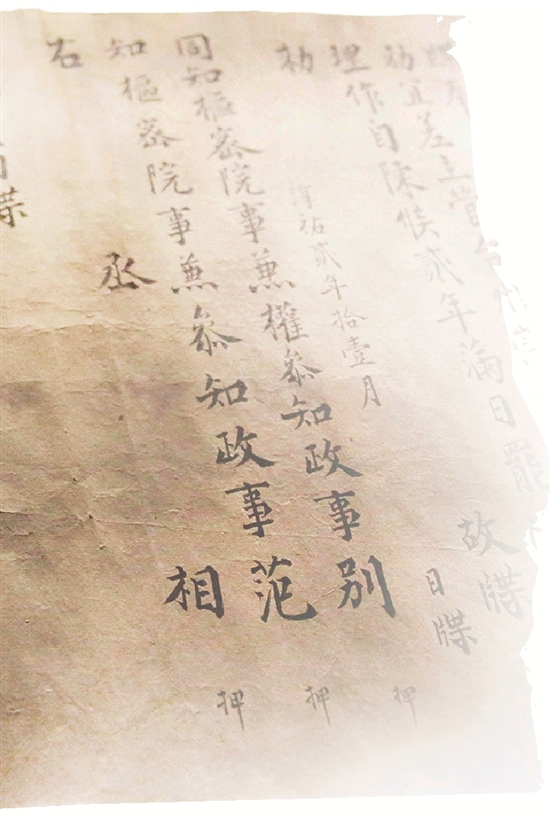 牒奉
勑宜差主管台州
理作自陳候貳年滿日罷
勑 故牒
淳祐貳年拾壹月 日牒
同知樞密院事兼權叅知政事別 押
知樞密院事兼叅知政事范 押
右 丞 相 押
牒